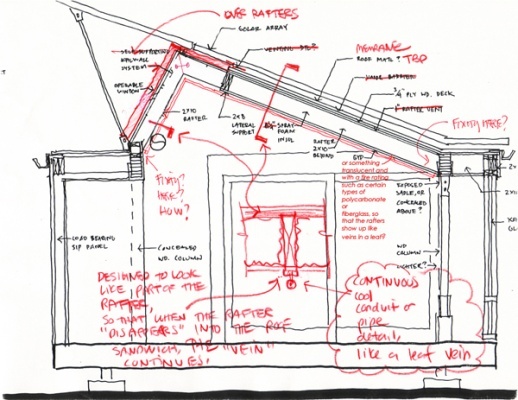 OVER RAFTERS
SOLAR ARRAY
SELF SUPPORTING
SYSTEM
OPERABLE
WINDOW
MEMBRANE
ROOF MATL? TBD
3/4" PLY WD. DECK
1" RAFTER VENT
FIXITY HERE?
2X10
RAFTER
2X8
LATERAL
SUPPORT
SPRAY
FOAM
INSUL
RAFTER
2X10
BEYOND
GYP.
or something
translucent and
with a fire rating
such as certain
types of
polycarbonate
or
fiberglass, so
that the rafters
show up like
veins in a leaf?
FIXITY?
HERE?
HOW?
EXPOSED
CONCEALED
ABOVE?
LOAD BEARING
SIP PANEL
CONCEALED
WD. COLUMN
WD
COLUMN
DESIGNED TO LOOK
LIKE PART OF THE
RAFTER,
SO THAT WHEN THE RAFTER
"DISAPPEARS" INTO THE ROOF
SANDWICH, THE "VEIN"
CONTINUES.
CONTINUOUS
cool
conduit or
pipe
detail,
like a leaf vein